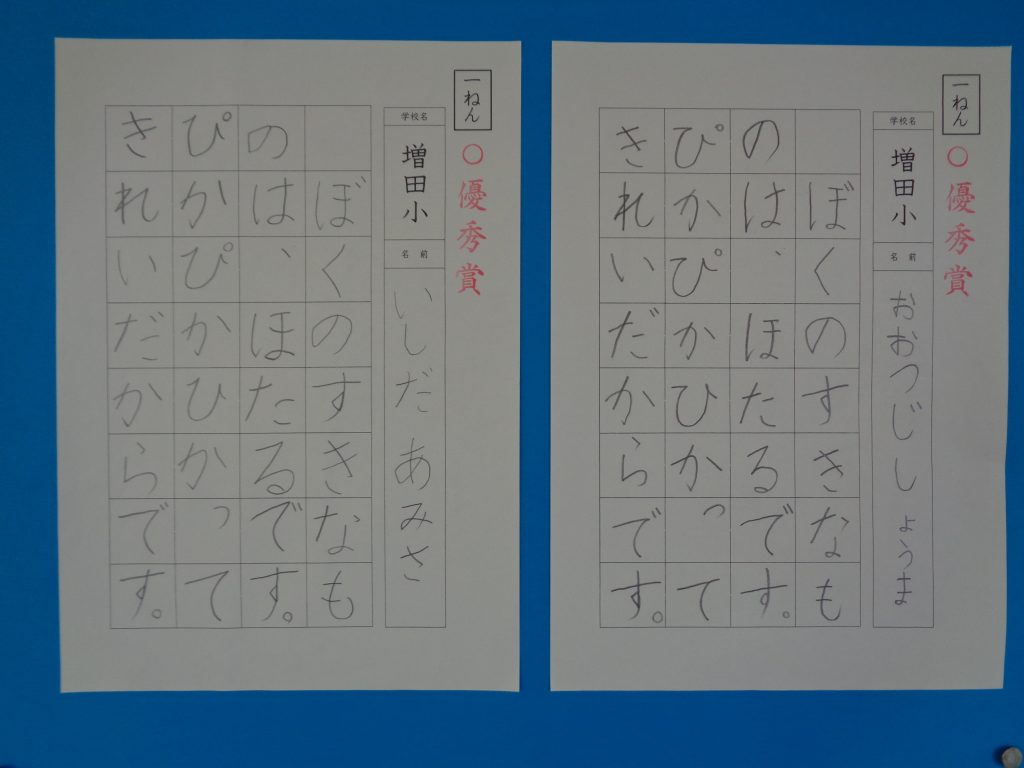 一ねん
○優秀賞
学校名 増田小
名前 おおつじ しょうま
ぼくのすきなも
のは、ほたるです。
ぴかぴかひかって
きれいだからです。
一ねん
○優秀賞
学校名 増田小
名前 いしだ あみさ
ぼくのすきなも
のは、ほたるです。
ぴかぴかひかって
きれいだからです。